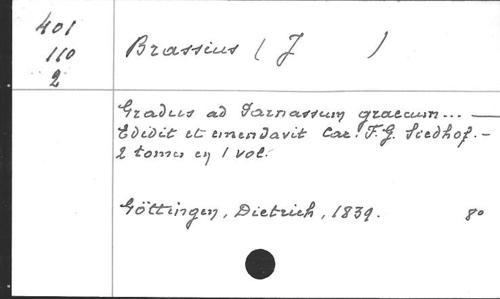 401
110
2
Brassius ( J )
Gradus ad Parnassum graecum... —
Edidit et emendavit Car. F. G. Siedhof. -
2 tomes en 1 vol.
Göttingen, Dietrich, 1839. 8o